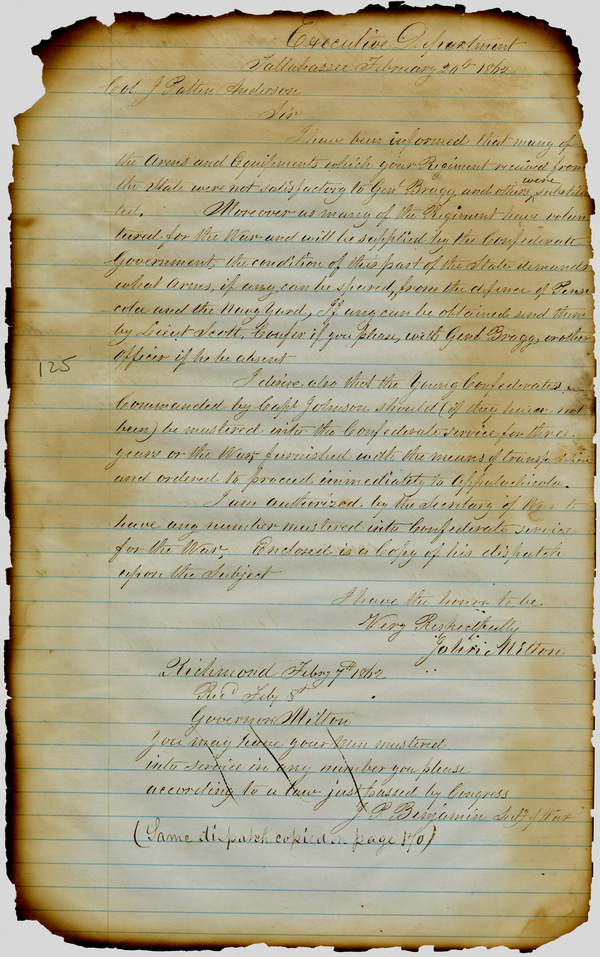 Executive Department
Tallahassee February 20th 1862
Col J Patten Anderson
Sir
I have been informed that many of
the Arms and Equipments which your Regiment received from
the State were not satisfactory to Genl Bragg and others, were substitu
ted. Moreover as many of the Regiment have volun
teered for the War and will be supplied by the Confederate
Government, the condition of this part of the State demands
what Arms, if any can be spared, from the defence of Pensa
cola and the Navy Yard, If any can be obtained send them
by Lieut Scott, Confer if you please, with Genl Bragg, or other
officer if he be absent
125
I desire also that the Young Confederates
Commanded by Capt Johnson should (if they have not
been) be mustered into the Confederate service for three
years or the War, furnished with the means of transp
and ordered to proceed immediately to Appalachicola.
I am authorized by the Secretary of War to
have any number mustered into Confederate service
for the War, Enclosed is a Copy of his dispatch
upon the Subject
I have the honor to be
Very Respectfully
John Milton
Richmond Febry 7th 1862
Recd Feby 8th
Governor Milton
You may have your men mustered
into service in any number you please
according to a law just passed by Congress
J P Benjamin Secty of War
(Same dispatch copied on page 170)